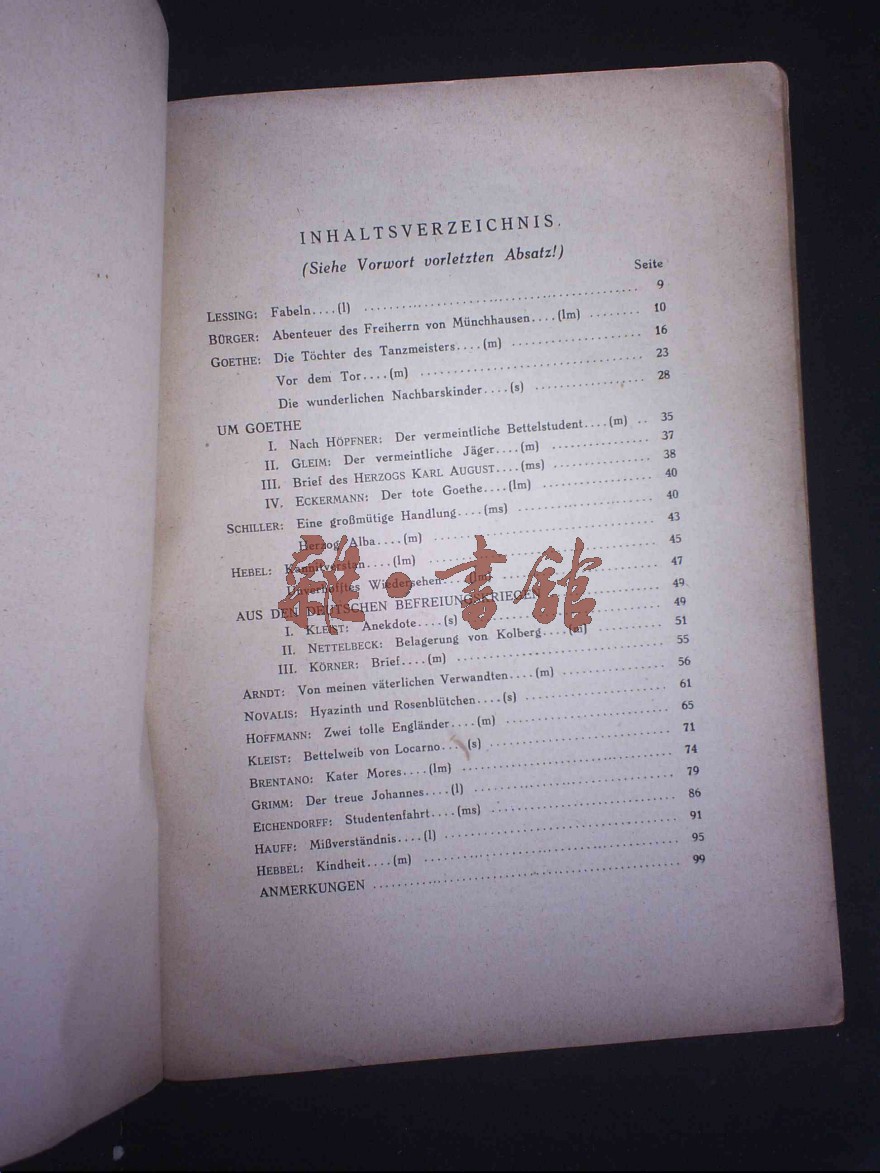 INHALTSVERZEICHNIS.
(Siehe Vorwort vorletzten Absatz!)
Seite
LESSING: Fabeln....(l) ........ 9
BÜRGER: Abenteuer des Freiherrn von Münchhausen....(lm) ........ 10
GOETHE: Die Töchter des Tanzmeisters....(m) ........ 16
Vor dem Tor....(m) ........ 23
Die wunderlichen Nachbarskinder....(s) ........ 28
UM GOETHE
I. Nach HÖPFNER: Der vermeintliche Bettelstudent....(m) .. 35
II. GLEIM: Der vermeintliche Jäger....(m) ........ 37
III. Brief des HERZOGS KARL AUGUST....(ms) ........ 38
IV. ECKERMANN: Der tote Goethe....(lm) ........ 40
SCHILLER: Eine großmütige Handlung....(ms) ........ 40
Herzog Alba....(m) ........ 43
HEBEL: Kannitverstan....(lm) ........ 45
Unverhofftes Wiedersehen....(lm) ........ 47
AUS DEN DEUTSCHEN BEFREIUNGSKRIEGEN ........ 49
I. KLEIST: Anekdote....(s) ........ 49
II. NETTELBECK: Belagerung von Kolberg....(m) ........ 51
III. KÖRNER: Brief....(m) ........ 55
ARNDT: Von meinen väterlichen Verwandten....(m) ........ 56
NOVALIS: Hyazinth und Rosenblütchen....(s) ........ 61
HOFFMANN: Zwei tolle Engländer....(m) ........ 65
KLEIST: Bettelweib von Locarno....(s) ........ 71
BRENTANO: Kater Mores....(lm) ........ 74
GRIMM: Der treue Johannes....(l) ........ 79
EICHENDORFF: Studentenfahrt....(ms) ........ 86
HAUFF: Mißverständnis....(l) ........ 91
HEBBEL: Kindheit....(m) ........ 95
ANMERKUNGEN ........ 99
雜·書館